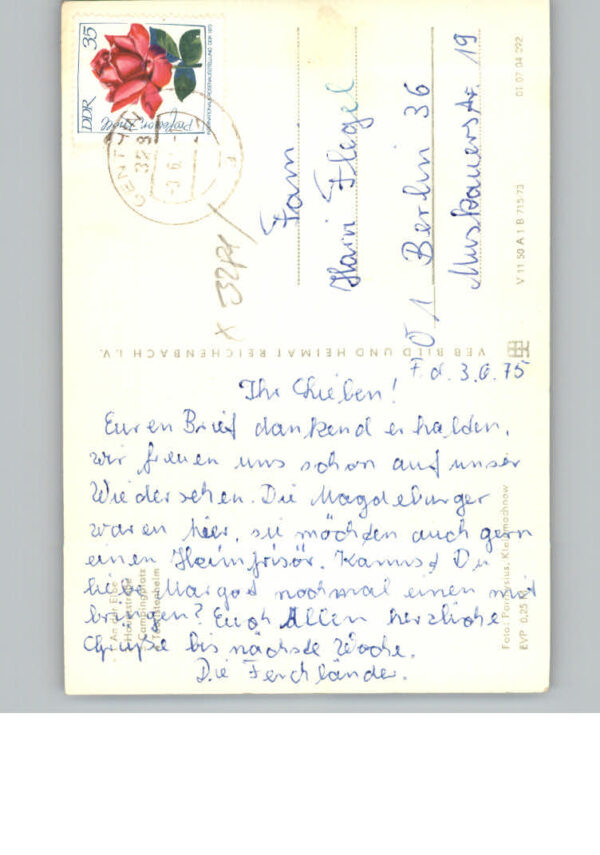 35
DDR
Professor Knöll
GENTHIN
328
-3.6.
x 32A/
Fam.
Harri Flegel
1 Berlin 36
Muskauerstr. 19
01 07 04 092
V 11 50 A 1 B 715/73
VEB BILD UND HEIMAT REICHENBACH I. V.
F. d. 3.6.75
Ihr Lieben!
Euren Brief dankend erhalden,
wir freuen uns schon auf unser
Wiedersehen. Die Magdeburger
waren hier, sie möchden auch gern
einen Heimfrisör. Kannsd Du
liebe Margod nochmal einen mit
bringen? Euch Allen herzliche
Grüße bis nächste Woche.
Die Ferchländer.
An der Elbe
Campingplatz
EVP 0,25 M